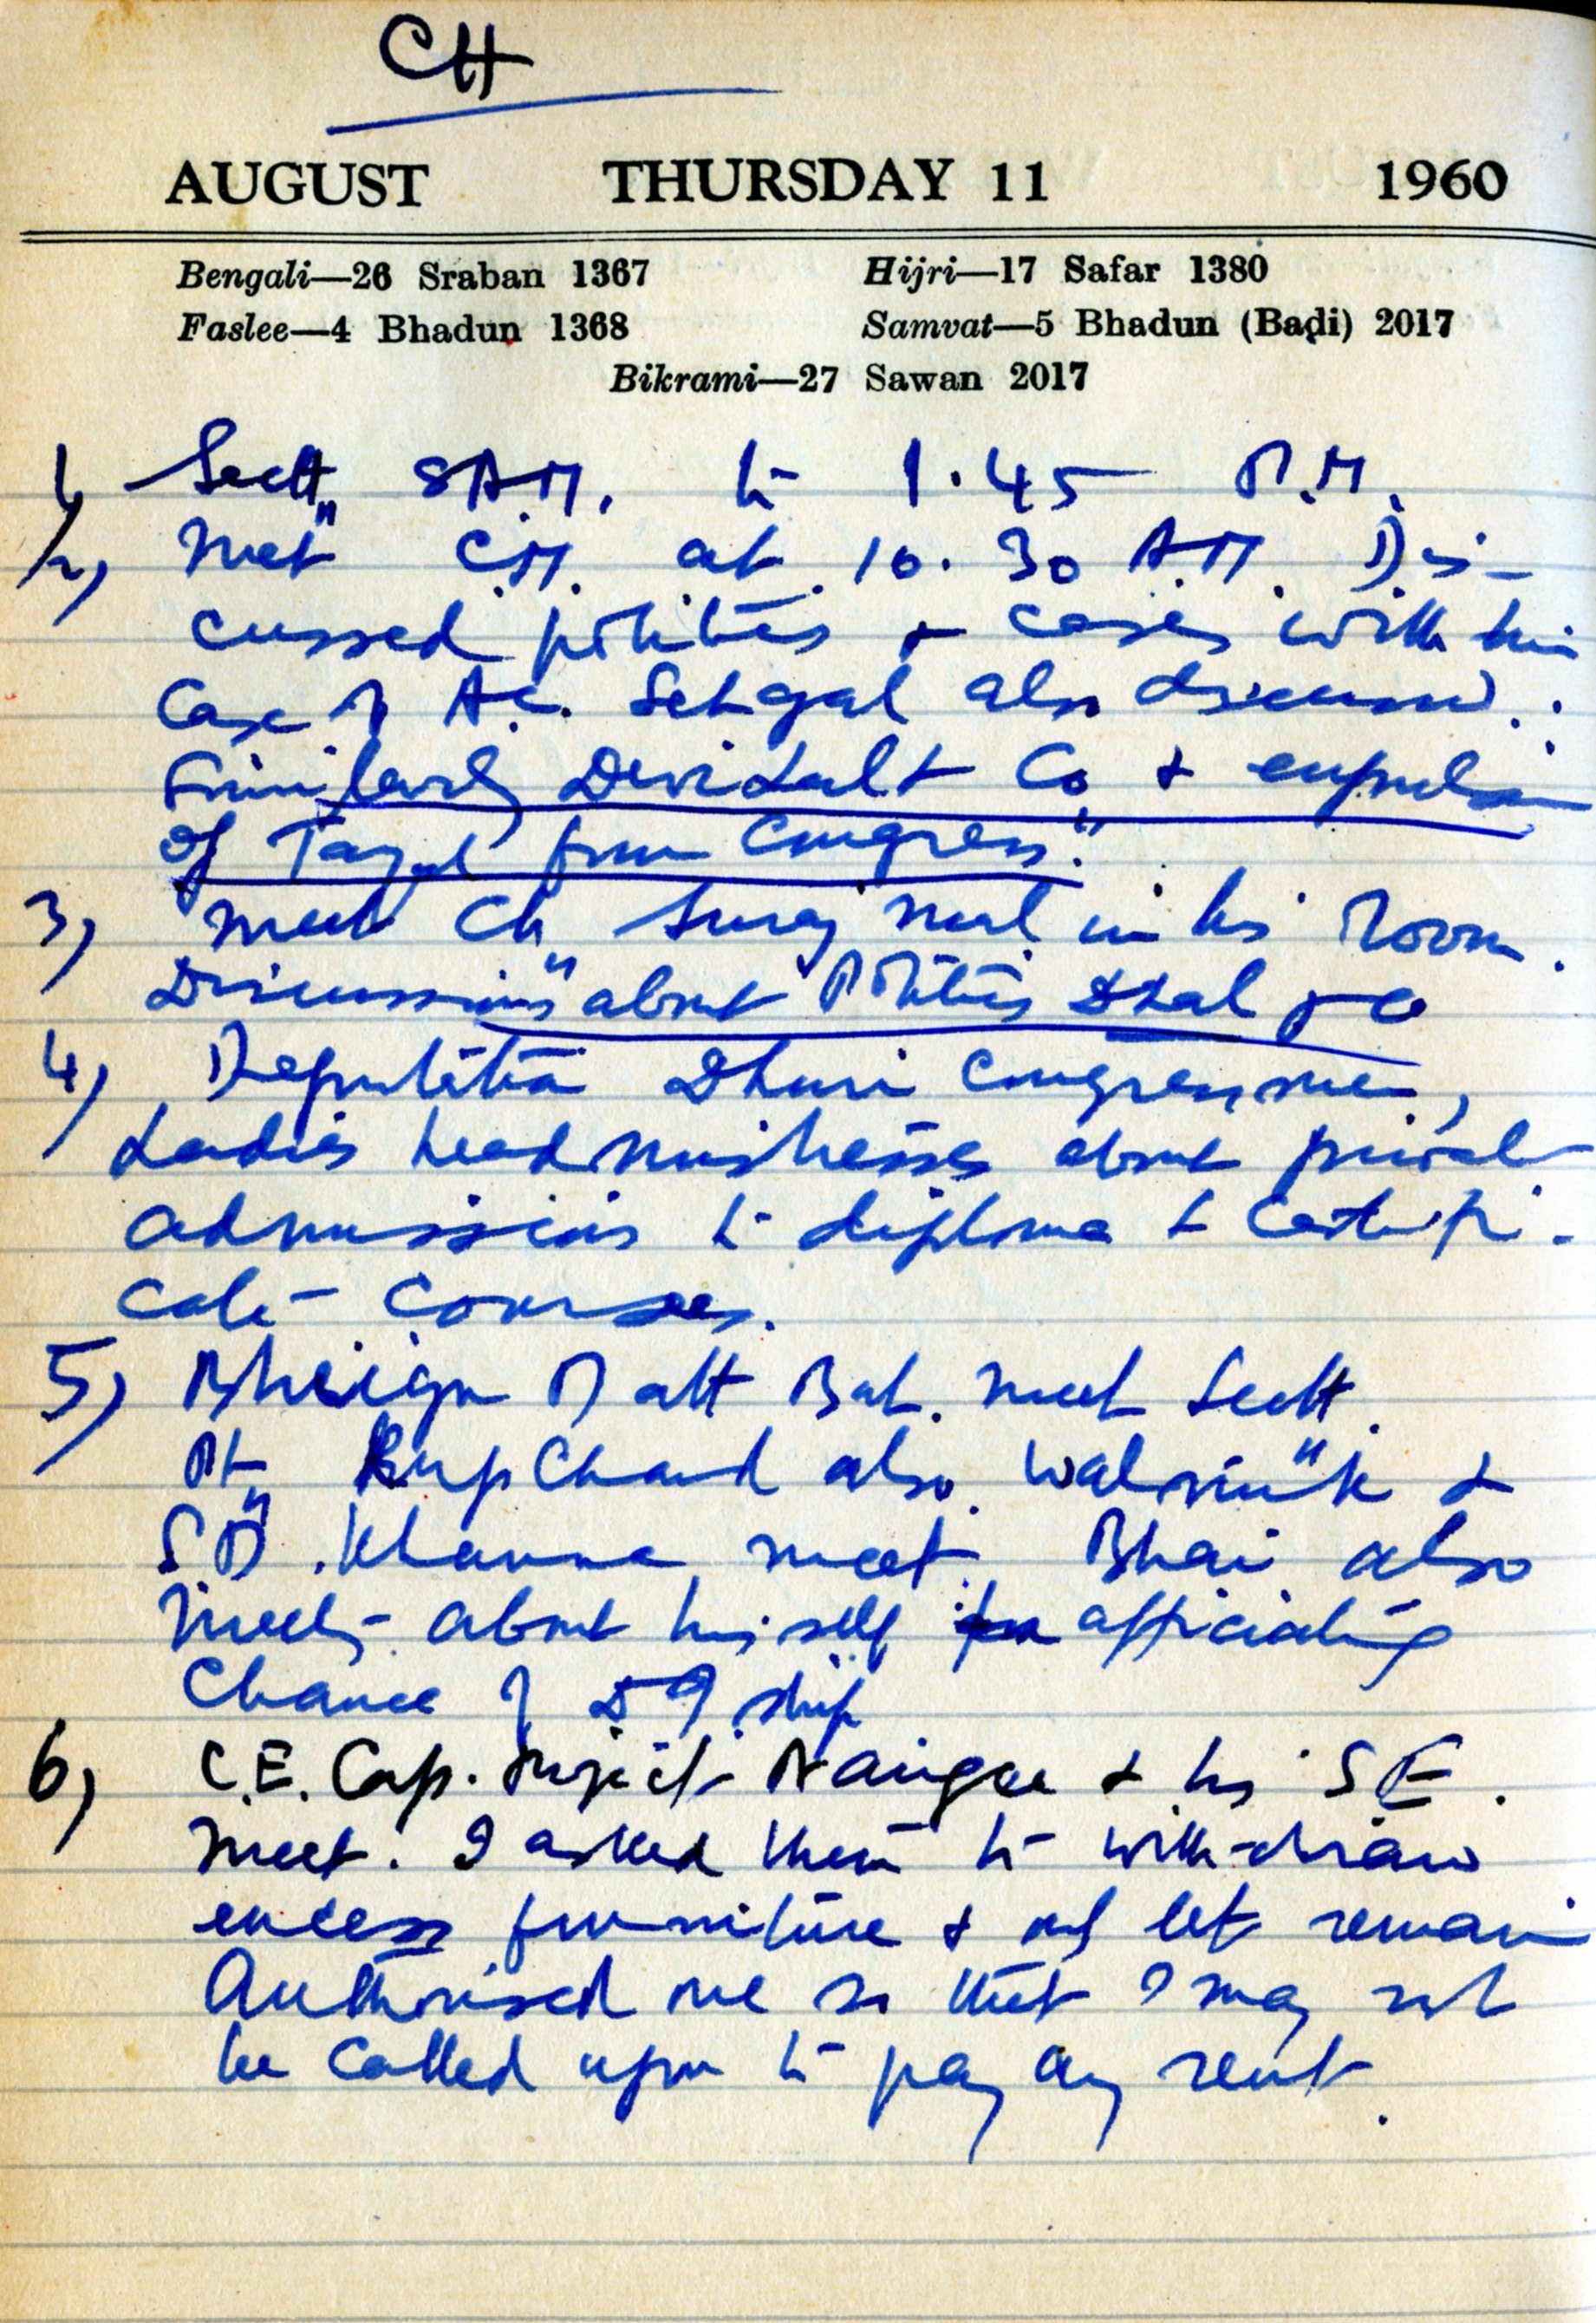 CH
AUGUST THURSDAY 11 1960
Bengali—26 Sraban 1367 Hijri—17 Safar 1380
Faslee—4 Bhadun 1368 Samvat—5 Bhadun (Badi) 2017
Bikrami—27 Sawan 2017
1) Sectt. 8 A.M. to 1.45 P.M.
2) Met C.M. at 10.30 A.M. Dis-
cussed politics & cases with him
Case of A.C. Sehgal also discussed.
Similarly Devi Lal & Co & expulsion
of Tayal from Congress."
3) Meet Ch. Suraj Mal in his Room.
Discussions about Politics & Lal & Co
4) Deputation Dhuri Congressmen,
Ladies headmistresses about private
admissions to diploma & Certifi-
cate courses.
5) Datt Bat. meet Sectt.
Pt. Rup Chand also &
S.P. Khanna meet. Bhai also
meets about himself for officiating
Chance of ship
6) C.E. Cap. Project & his S.E.
meet. I asked them to with-draw
excess furniture & only let remain
Authorised one so that I may not
be called upon to pay any rent.